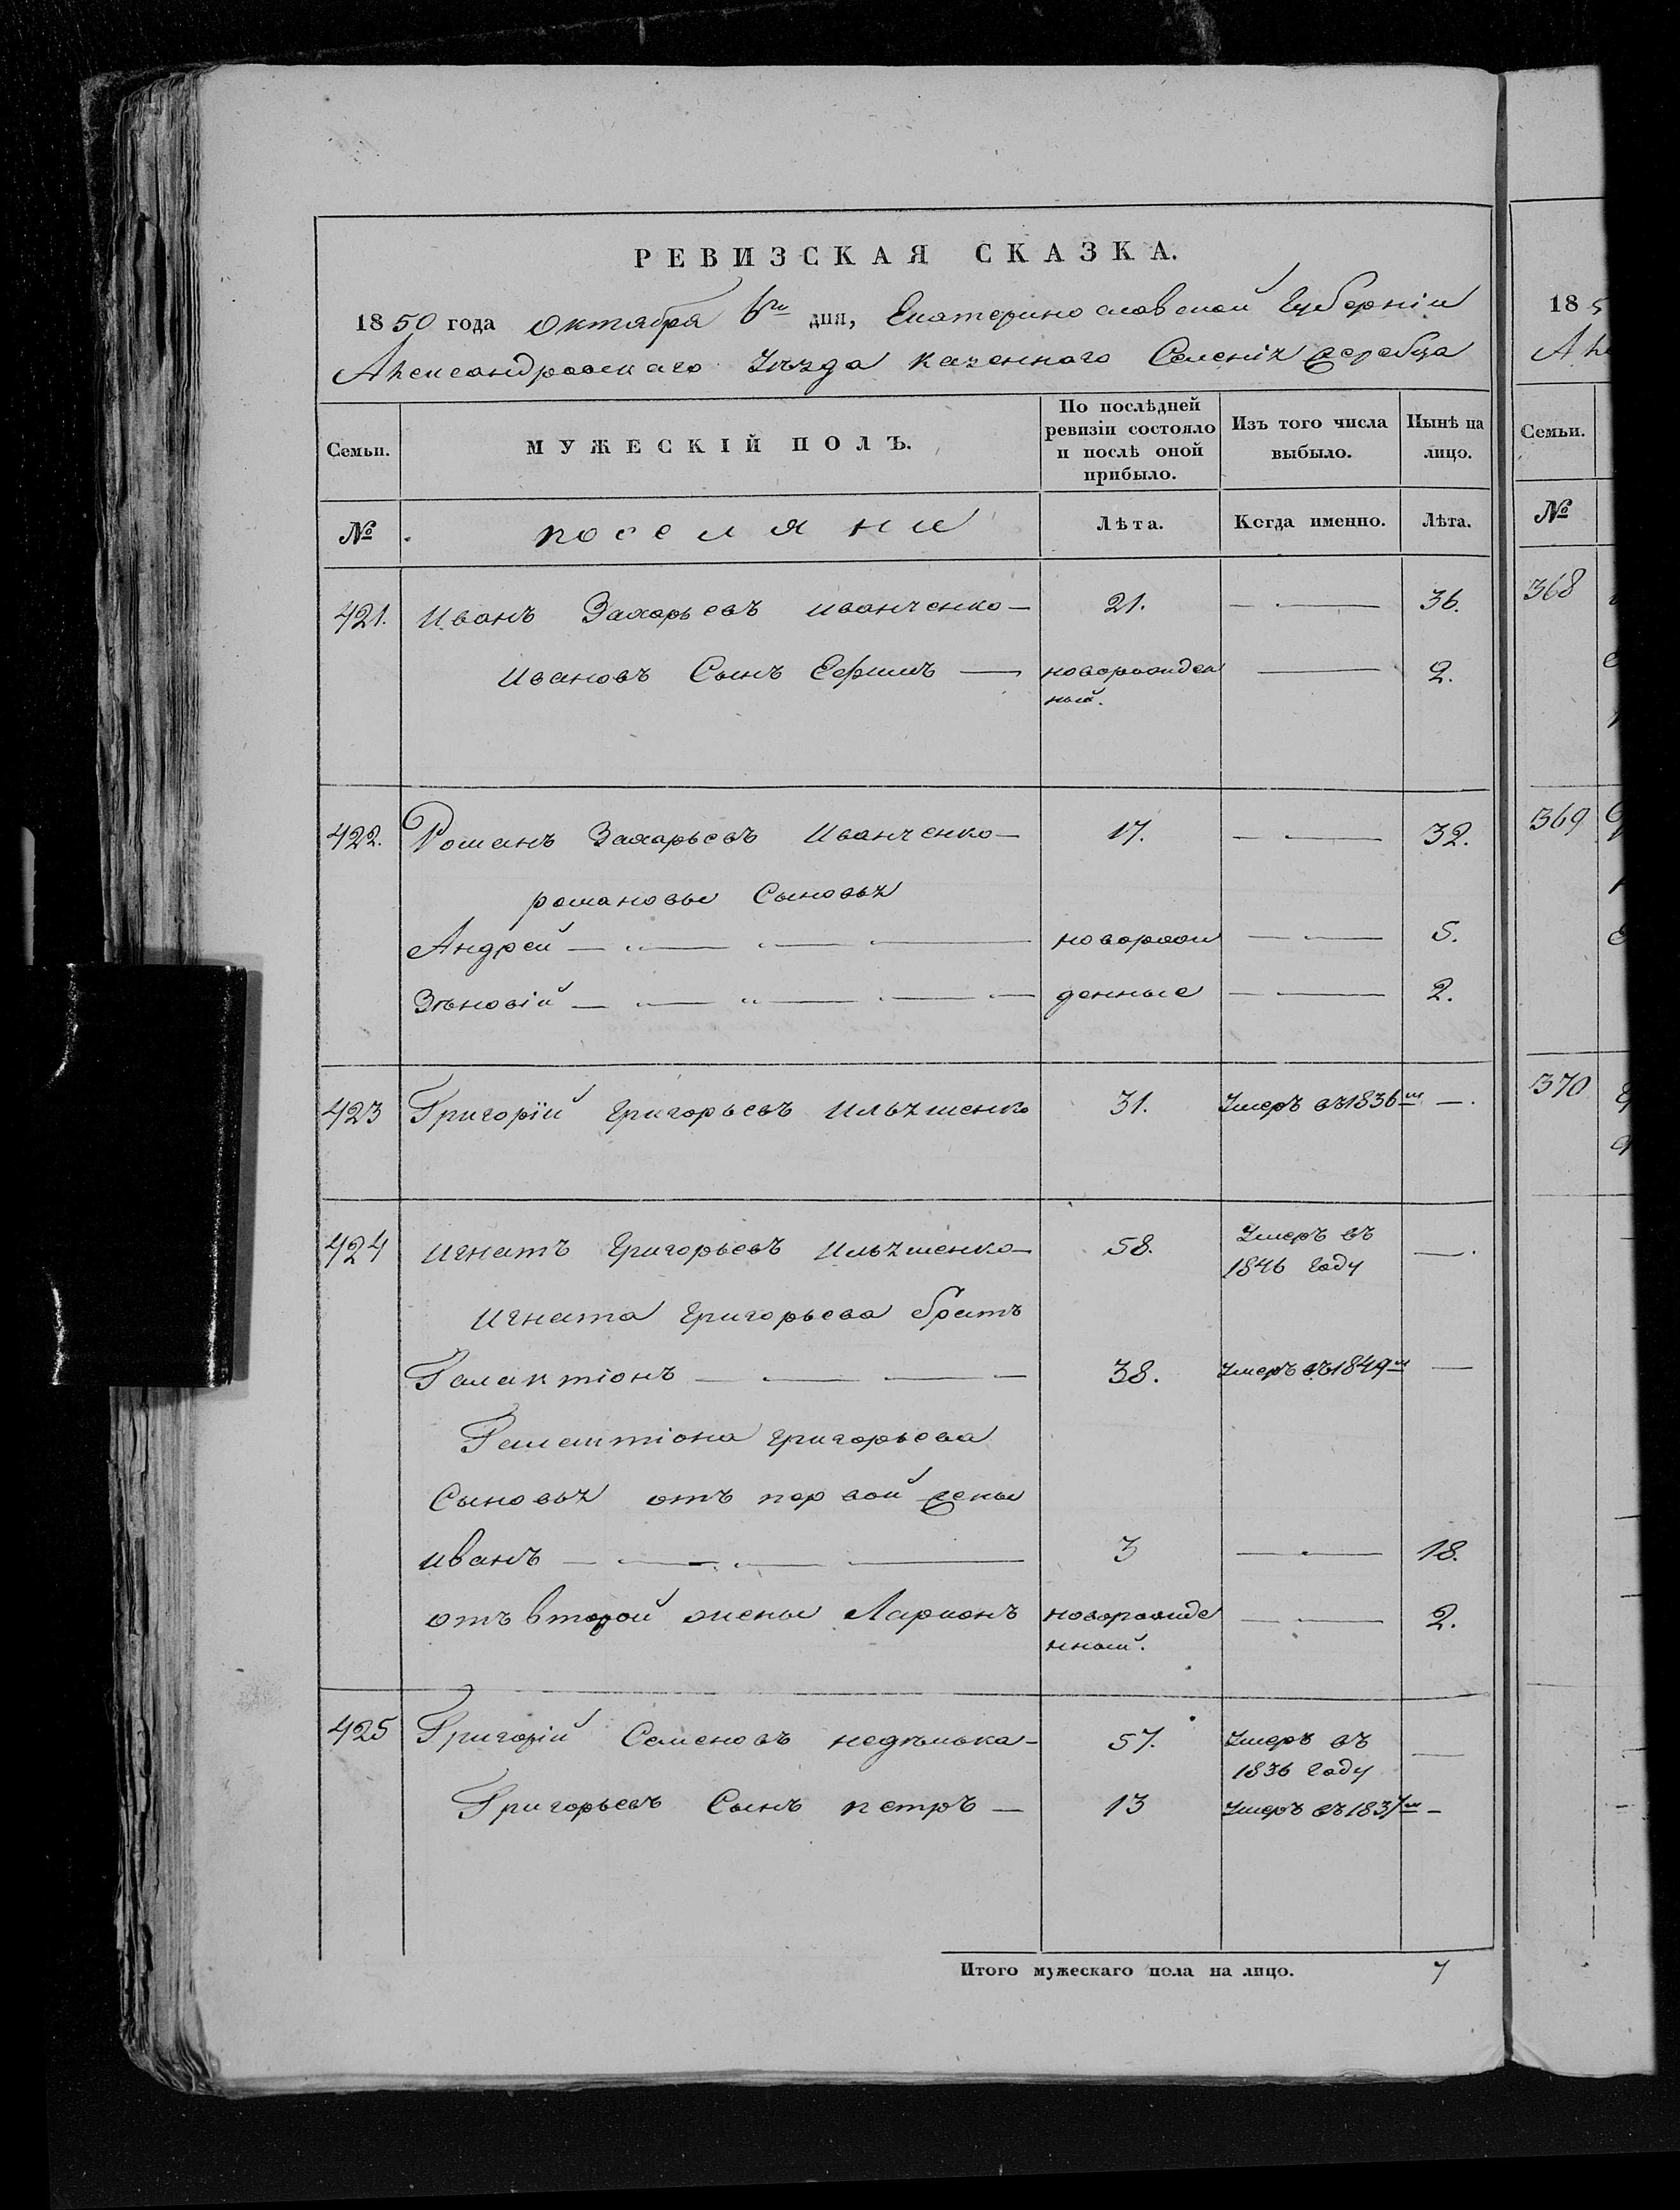 РЕВИЗСКАЯ СКАЗКА.
1850 года Октября 6го дня, Екатеринославской Губерніи
Александровскаго Уѣзда казеннаго Селенія Жеребца
Семьи. МУЖЕСКІЙ ПОЛЪ. По послѣдней ревизіи состояло и послѣ оной прибыло. Изъ того числа выбыло. Нынѣ на лицо.
№ поселяни Лѣта. Когда именно. Лѣта.
421. Иванъ Захарьевъ Иванченко — 21. — 36.
Ивановъ Сынъ Ефимъ — новорожден ный. — 2.
422. Романъ Захарьевъ Иванченко — 17. — 32.
романовы Сыновья
Андрей — новорож — 5.
Зѣновій — денные — 2.
423 Григорій Григорьевъ Ильяшенко 31. Умеръ въ 1836м —.
424 Игнатъ Григорьевъ Ильяшенко — 58. Умеръ въ 1846 году —.
Игната Григорьева братъ
Галактіонъ — 38. Умеръ въ 1849м —
Галактіона Григорьева
Сыновья отъ первой жены
Иванъ — 3 — 18.
отъ второй жены Ларионъ новорожде нный. — 2.
425 Григорій Семеновъ недѣлька — 57. Умеръ въ 1836 году —
Григорьевъ Сынъ петръ — 13 Умеръ въ 1837м —
Итого мужескаго пола на лицо. 7
185
Але
Семьи.
№
368
369
370